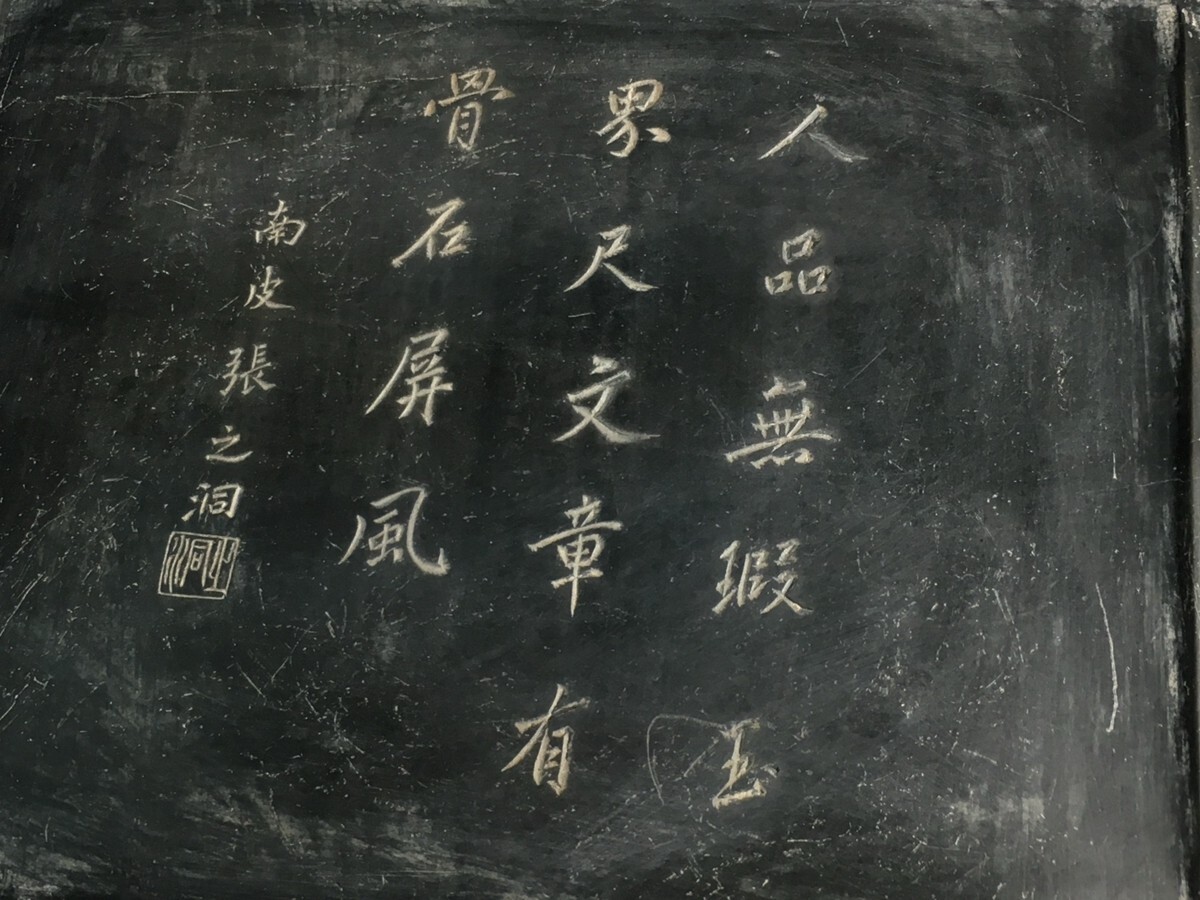 人品無瑕玉
界尺文章有
骨石屏風
南皮張之洞
之洞